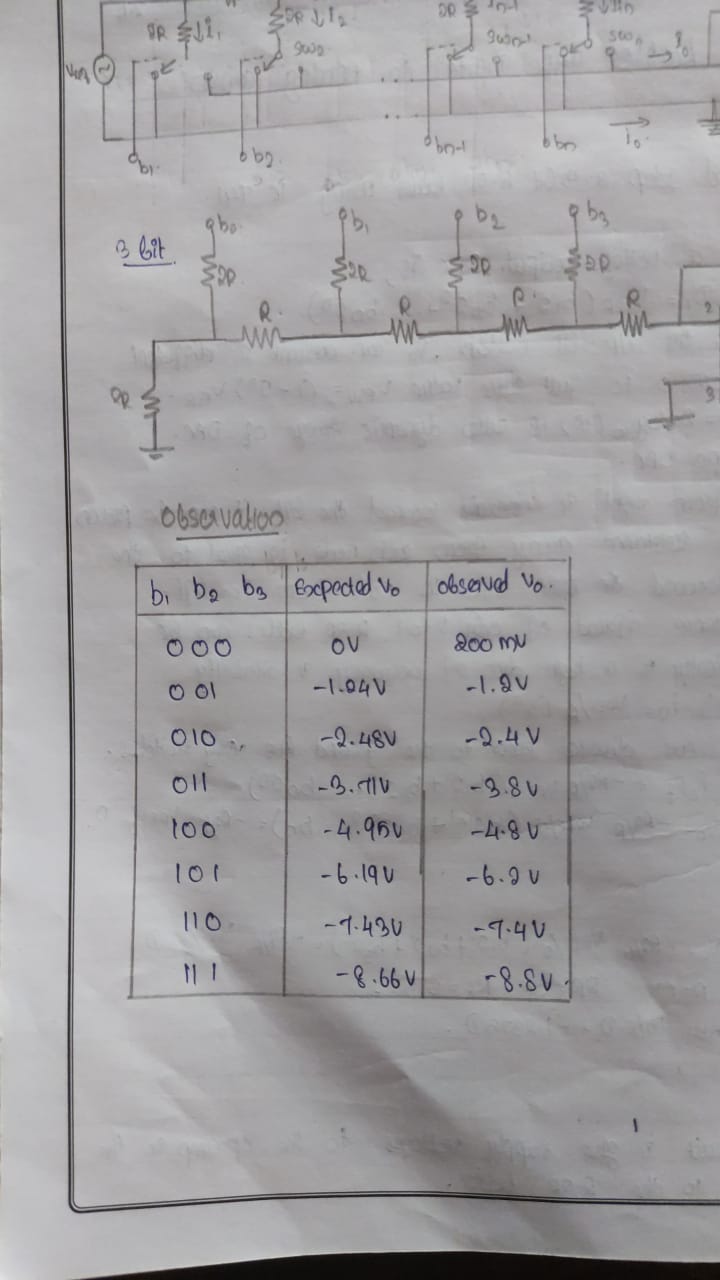 2R ↓I₁
2R ↓I₂
2R
In-1
sw₂
swn-1
swn
Vin
I₀
b₁
b₂
bn-1
bn
I₀
3 bit
b₀
b₁
b₂
b₃
2R
2R
2R
2R
R
R
R
R
2R
2
3
Observation
b₁ b₂ b₃ Expected V₀ observed V₀.
000 0V 200 mV
001 -1.24V -1.2V
010 -2.48V -2.4V
011 -3.71V -3.8V
100 -4.95V -4.8V
101 -6.19V -6.2V
110 -7.43V -7.4V
111 -8.66V -8.8V